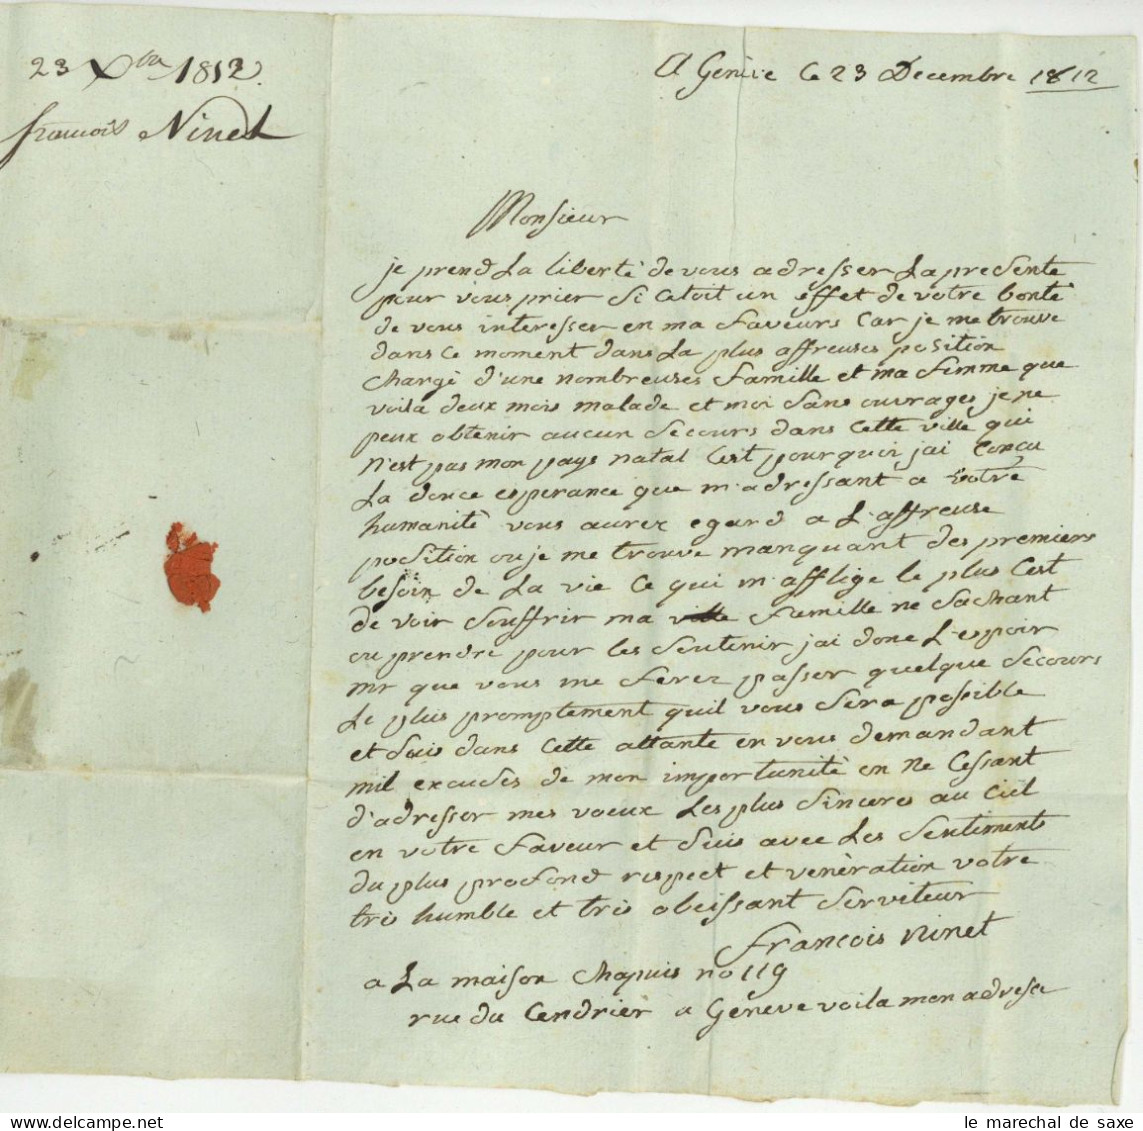 23 Xbre 1812
francois Ninet
A Genève Ce 23 Decembre 1812
Monsieur
je prend La liberté de vous adresser La presente
pour vous prier si cetoit un effet de votre bonté
de vous interesser en ma faveurs Car je me trouve
dans ce moment dans La plus affreuses position
chargé d'une nombreuses famille et ma femme que
voila deux mois malade et moi sans ouvrages je ne
peux obtenir aucun secours dans cette ville qui
n'est pas mon pays natal C'est pourquoi jai concu
La douce esperance que m'adressant a votre
humanité vous aurez egard a L'affreuse
position ou je me trouve manquant des premiers
besoin de La vie ce qui m'afflige le plus C'est
de voir souffrir ma famille ne sachant
ou prendre pour les soutenir jai donc L'espoir
mr que vous me ferez passer quelque secours
Le plus promptement quil vous sera possible
et suis dans cette attante en vous demandant
mil excuses de mon importunité en ne Cessant
d'adresser mes voeux Les plus sinceres au Ciel
en votre faveur et suis avec Les sentiments
du plus profond respect et venèration votre
tres humble et tres obeissant serviteur
François Ninet
a La maison Chapuis no 119
rue du Cendrier a Geneve voila mon adresse
le marechal de saxe